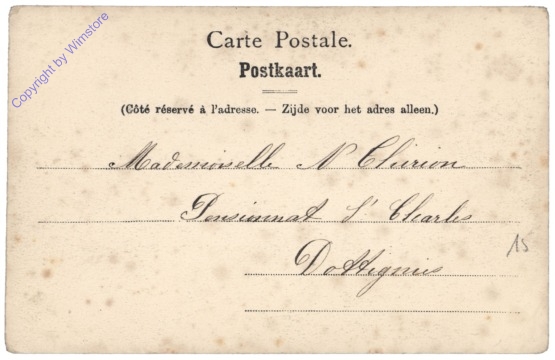 Copyright by Wimstore
Carte Postale.
Postkaart.
(Côté réservé à l'adresse. — Zijde voor het adres alleen.)
Mademoiselle N
Pensionnat St Charles
Dottignies
15